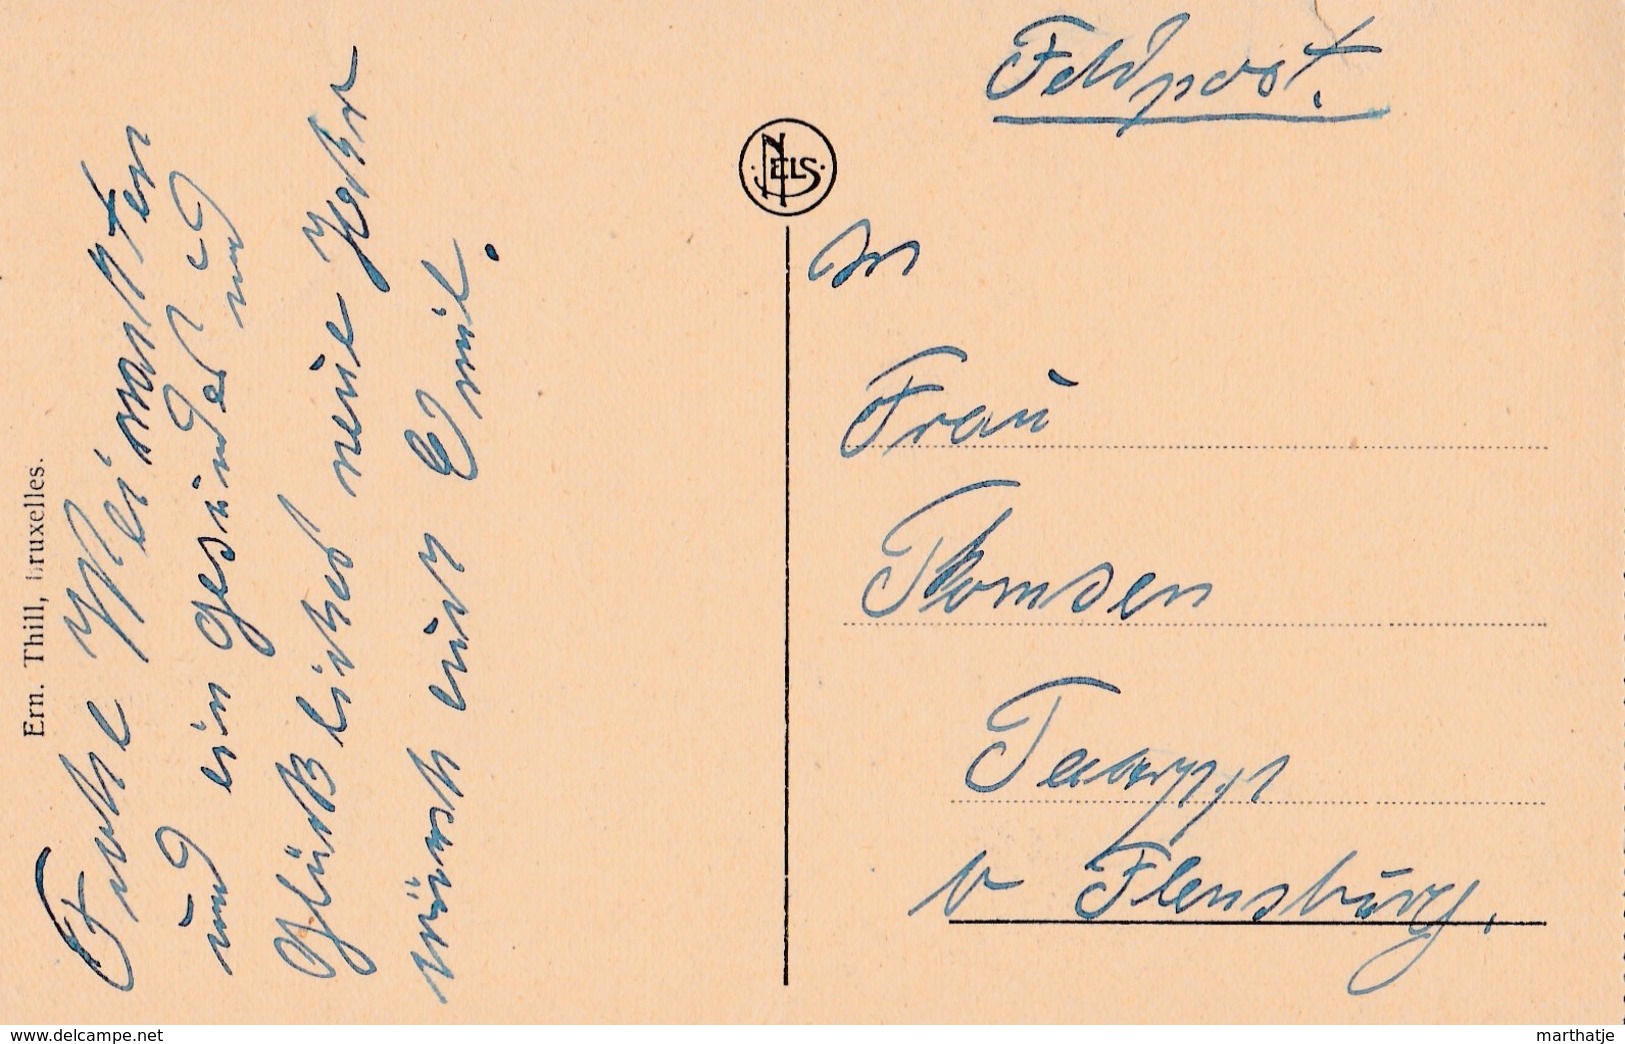 Ern. Thill, Bruxelles.
Frohe Weinachten
und ein gesundes und
Glückliches neue Jahr
wünscht euer Emil.
NELS
Feldpost.
An
Frau
Thomsen
Tarpp
b Flensburg.
www.delcampe.net
marthatje